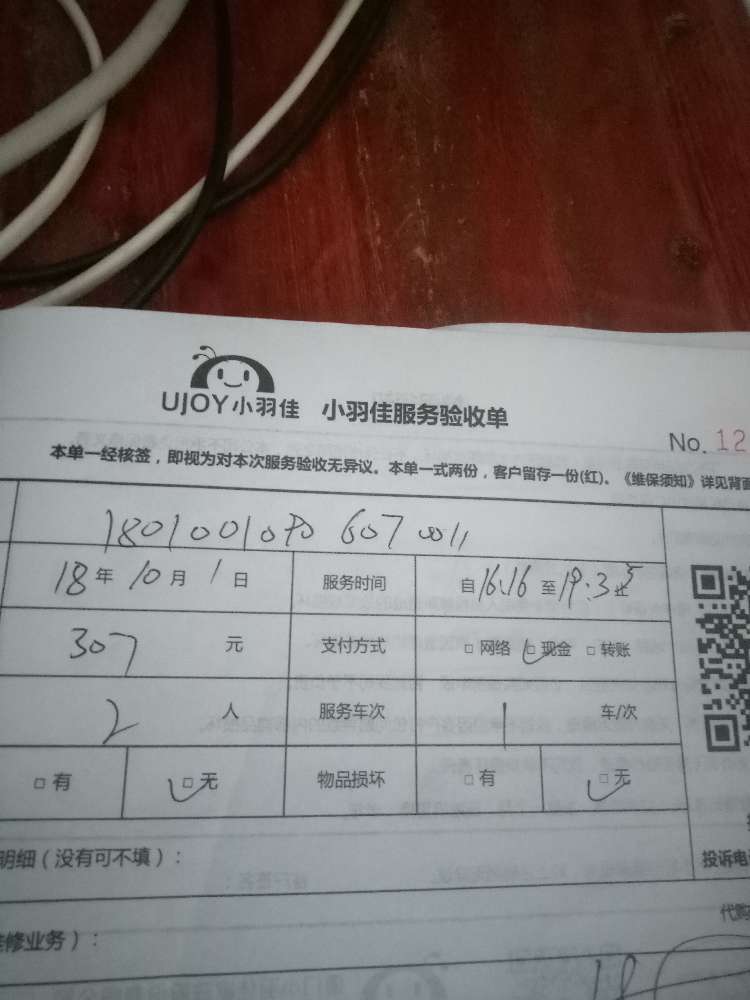 UJOY小羽佳 小羽佳服务验收单
No. 12
本单一经核签，即视为对本次服务验收无异议。本单一式两份，客户留存一份(红)。《维保须知》详见背面
18年10月1日 服务时间 自16.16至19.35止
307元 支付方式 □网络 □现金 □转账
2人 服务车次 1车/次
□有 □无 物品损坏 □有 □无
明细（没有可不填）：
投诉电
代购
维修业务）：